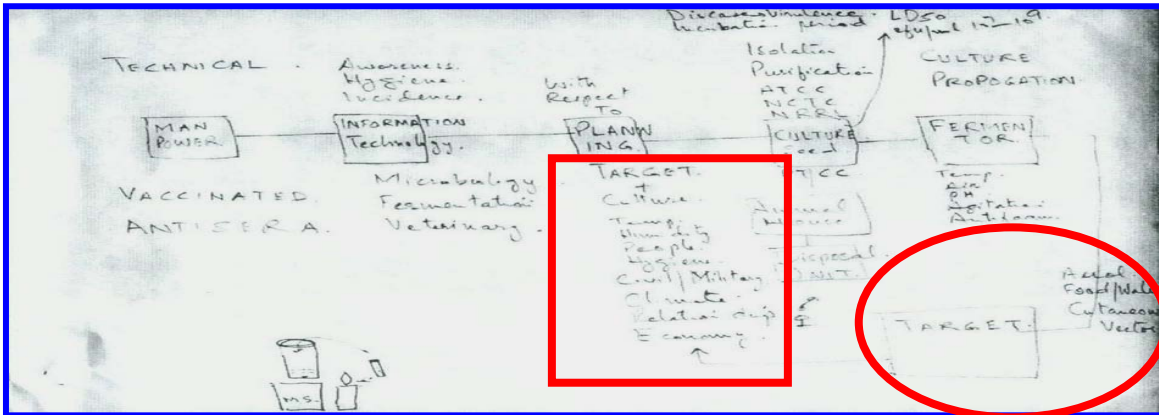 Disease virulence. LD50
Incubation period
TECHNICAL.
Awareness.
Hygiene.
Incidence.
With
Respect
To
Isolation
Purification
ATCC
NCTC
NRRL
CULTURE
PROPOGATION.
MAN
POWER.
INFORMATION
Technology.
PLANN
ING.
CULTURE
Seed
FERMEN
TOR.
VACCINATED.
ANTISERA.
Microbiology
Fermentation
Veterinary.
TARGET.
+
Culture.
Temp.
Humidity
People.
Hygiene.
Civil/Military
Climate.
Relationship
Economy.
Animal
House
Disposal
UNIT.
Temp.
Air
PH
Agitation
TARGET.
Aerial.
Food/Wate
Cutaneou
Vector
M.S.